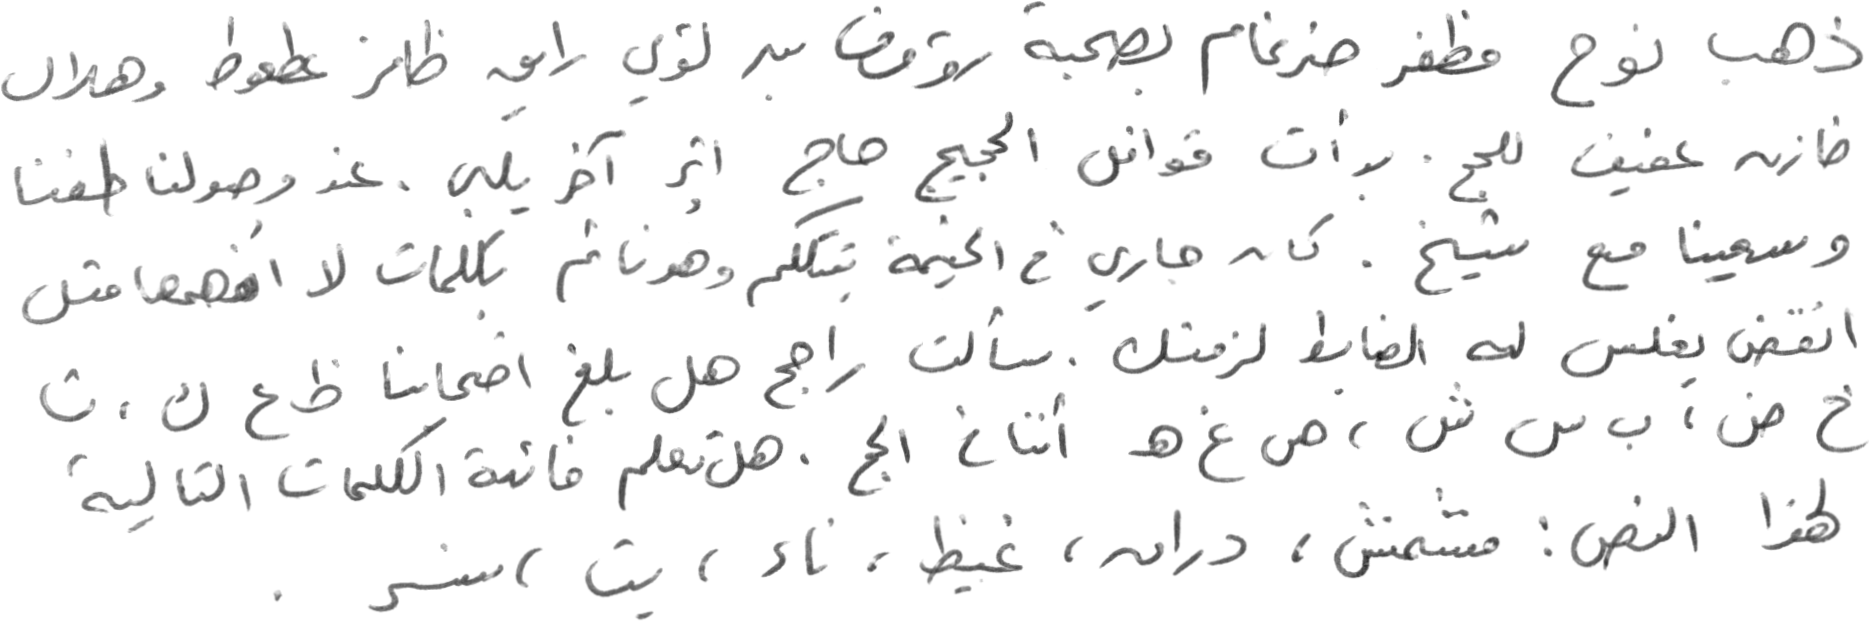 ذهب نوح مظفر ضرغام بصحبة رؤوف بن لؤي رامي ظافر عطعوط وهلال
خازن عفيف للحج. بدأت قوافل الحجيج حاج اثر آخر يلبي. عند وصولنا طفنا
وسعينا مع شيخ. كان جاري في الخيمة يتكلم وهو نائم بكلمات لا أفهمها مثل
انقض يغلس له الضابط لزمتك. سألت راجح هل بلغ اضحاننا ظ ع ك، ث
خ ض، ب س ش، ص غ ه أثناء الحج. هل تعلم فائدة الكلمات التالية
لهذا النص: مشمش، دران، غيظ، ناء، يت، سنسر.